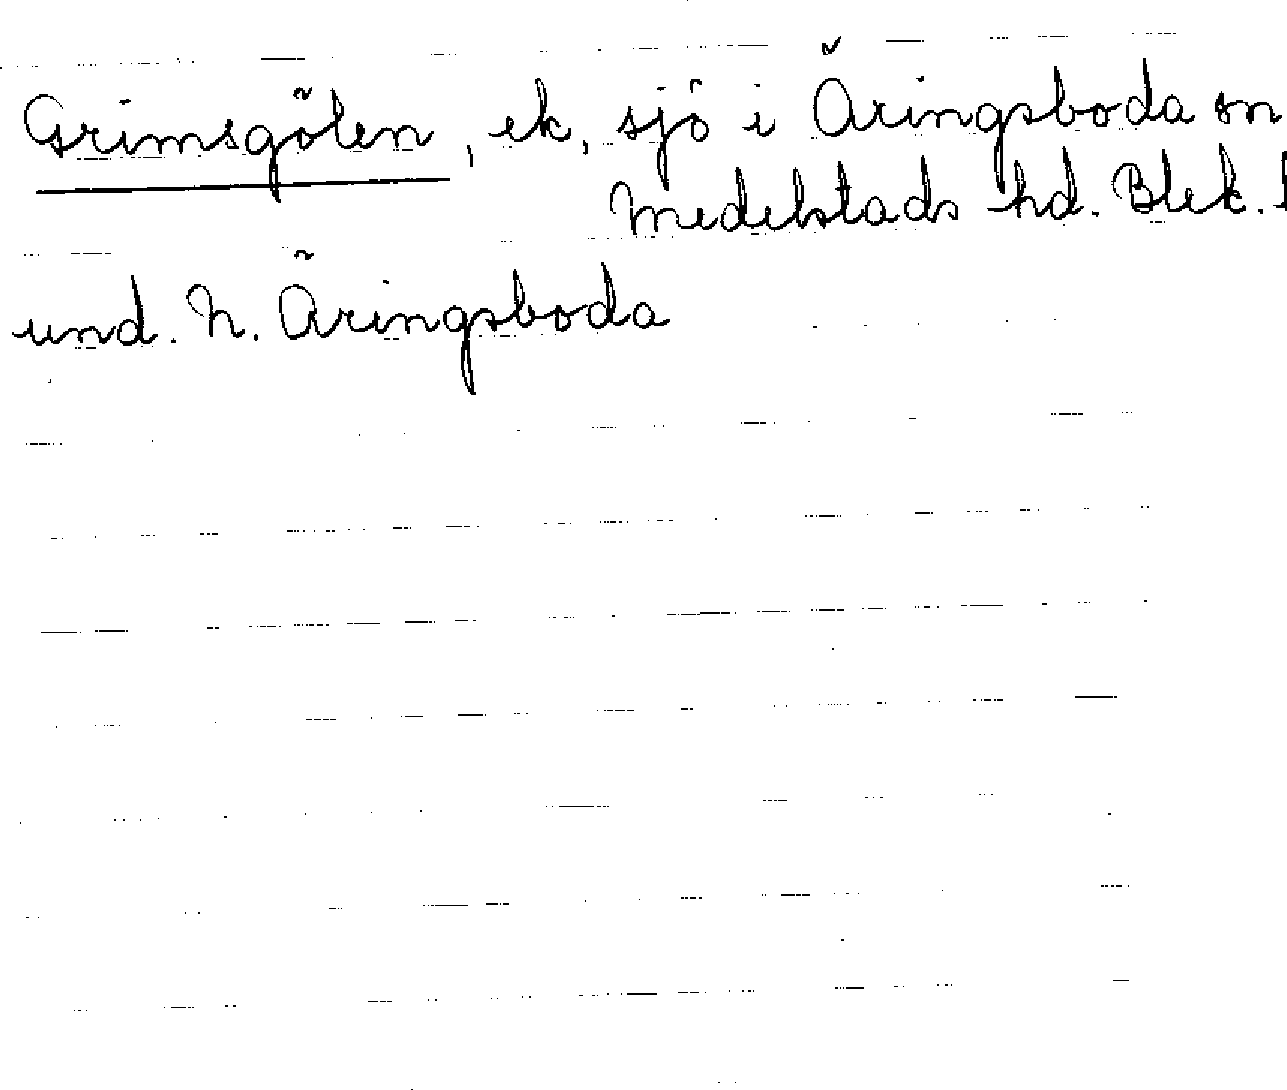 Grimsgölen, ek, sjö i Äringsboda sn
Medelstads hd. Blek.
und. N. Äringsboda